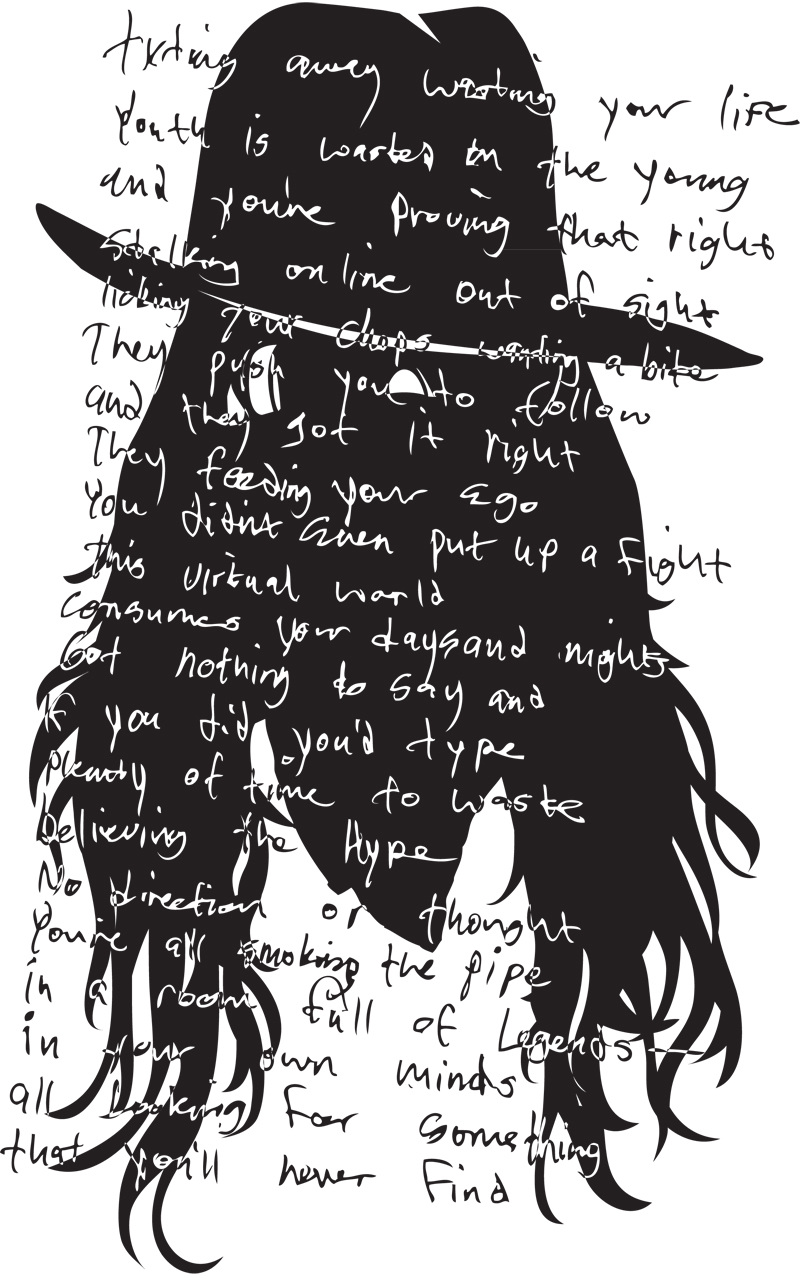 txting away wasting your life
Youth is wasted on the young
and you're proving that right
Stalking online out of sight
licking your chops wanting a bite
They push you to follow
and they got it right
They feeding your Ego
You didnt Even put up a fight
this virtual world
consumes your days and nights
Got nothing to say and
If you did you'd type
plenty of time to waste
believing the Hype
No direction or thought
You're all smoking the pipe
in a room full of Legends
in your own minds
all looking for something
that you'll never find